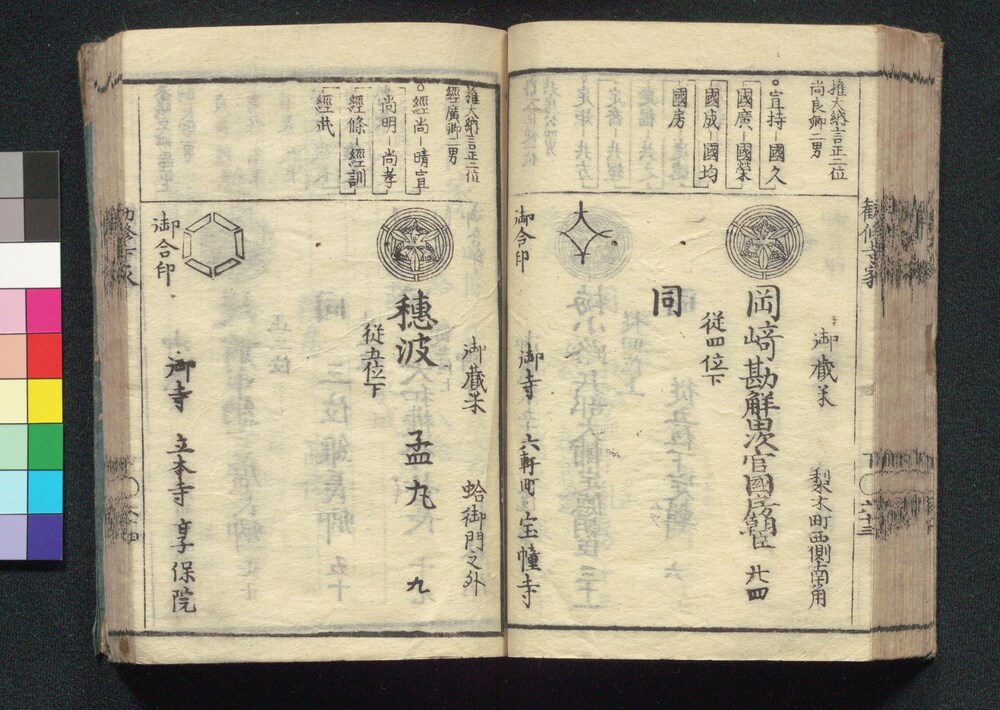 権大納言正二位
尚良卿二男
宣持-國久
國廣-國栄
國成-國均
國房
勧修寺家
御蔵米
梨木町西側南角
岡﨑勘解由次官國房朝臣 廿四
従四位下
同
御合印
大
御寺 六軒町 宝幢寺
下
六十三
権大納言正二位
経廣卿二男
經尚-晴宣
尚明-尚孝
經條-經訓
經武
御蔵米 蛤御門之外
穂波 孟丸 九
従五位下
御合印
御寺 立本寺 享保院